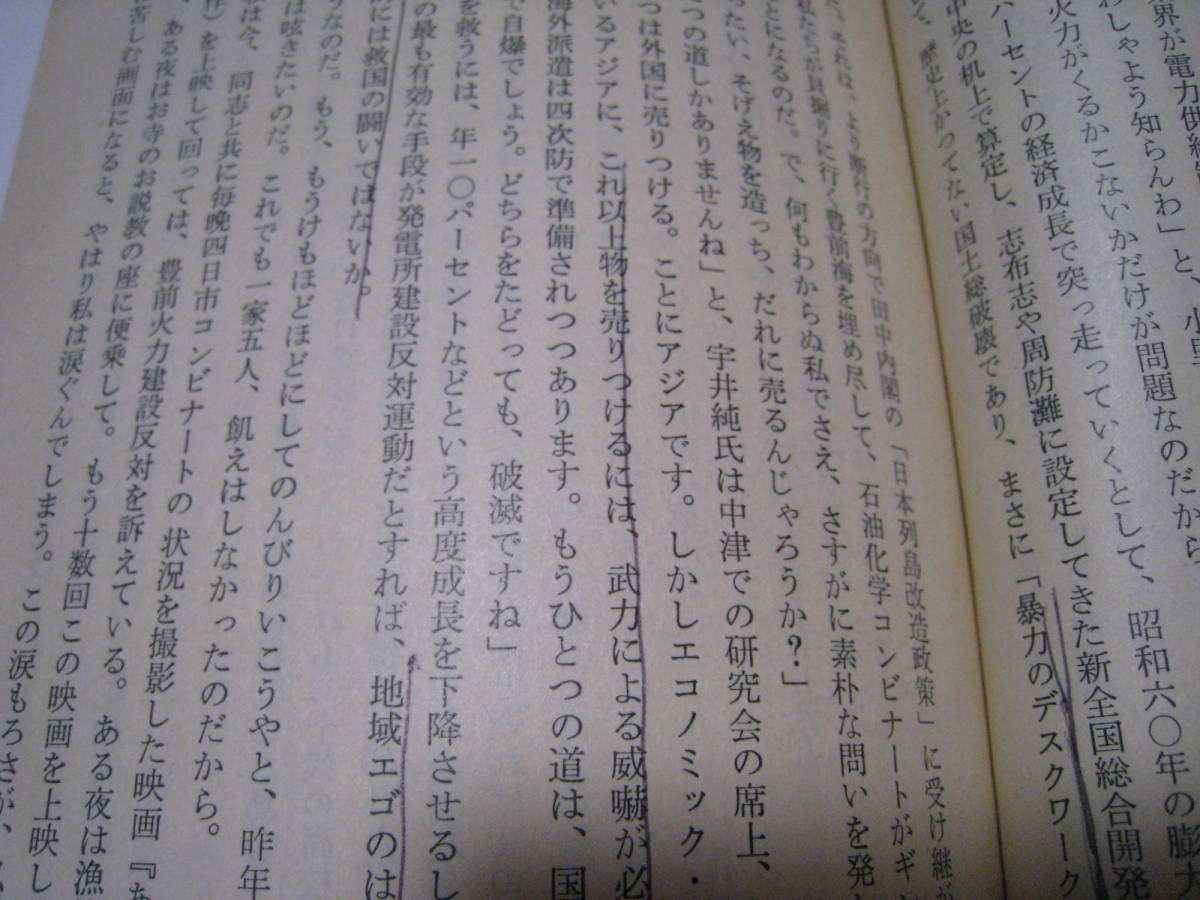 業界が電力供給
わしゃよう知らんわ」と、小
火力がくるかこないかだけが問題なのだから
パーセントの経済成長で突っ走っていくとして、昭和六〇年の膨大
中央の机上で算定し、志布志や周防灘に設定してきた新全国総合開発
て、歴史上かつてない国土総破壊であり、まさに「暴力のデスクワーク
それは、より断行の方向で田中内閣の「日本列島改造政策」に受け継が
私たちが貝掘りに行く豊前海を埋め尽して、石油化学コンビナートがギ
とになるのだ。で、何もわからぬ私でさえ、さすがに素朴な問いを発
ったい、そげえ物を造っち、だれに売るんじゃろうか?」
つの道しかありませんね」と、宇井純氏は中津での研究会の席上、
つは外国に売りつける。ことにアジアです。しかしエコノミック・
いるアジアに、これ以上物を売りつけるには、武力による威嚇が必
海外派遣は四次防で準備されつつあります。もうひとつの道は、国
で自爆でしょう。どちらをたどっても、破滅ですね」
を救うには、年一〇パーセントなどという高度成長を下降させるし
の最も有効な手段が発電所建設反対運動だとすれば、地域エゴのは
には救国の闘いではないか。
うなのだ。もう、もうけもほどほどにしてのんびりいこうやと、昨年
は呟きたいのだ。これでも一家五人、飢えはしなかったのだから。
は今、同志と共に毎晩四日市コンビナートの状況を撮影した映画『
作)を上映して回っては、豊前火力建設反対を訴えている。ある夜は漁
、ある夜はお寺のお説教の座に便乗して。もう十数回この映画を上映し
に苦しむ画面になると、やはり私は涙ぐんでしまう。この涙もろさが、